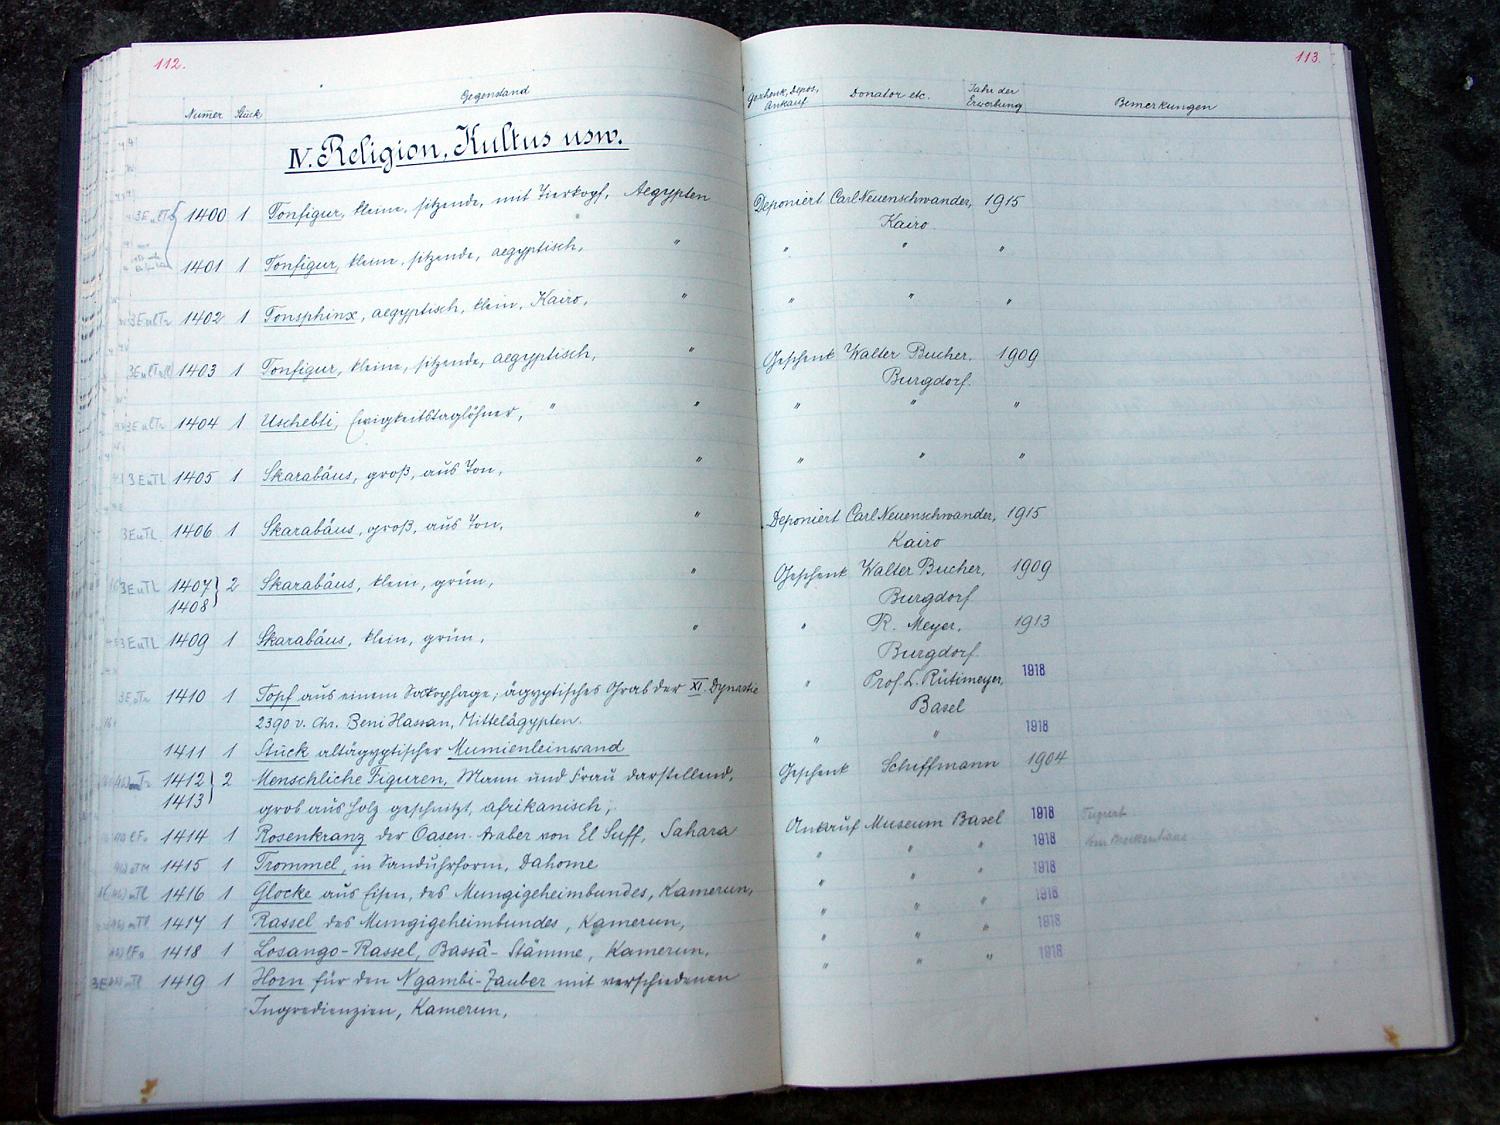 112.
Numer Stück Gegenstand
IV. Religion, Kultus usw.
1400 1 Tonfigur, kleine, sitzende, mit Tierkopf, Aegypten
1401 1 Tonfigur, kleine, sitzende, aegyptisch, "
1402 1 Tonsphinx, aegyptisch, klein, Kairo, "
1403 1 Tonfigur, kleine, sitzende, aegyptisch, "
1404 1 Uschebti, Ewigkeitstaglöhner, " "
1405 1 Skarabäus, groß, aus Ton, "
1406 1 Skarabäus, groß, aus Ton, "
1407 } 2 Skarabäus, klein, grün, "
1408
1409 1 Skarabäus, klein, grün, "
1410 1 Topf aus einem Sarkophage; ägyptisches Grab der XI. Dynastie
2390 v. Chr. Beni Hassan, Mittelägypten.
1411 1 Stück altägyptischer Mumienleinwand
1412 } 2 Menschliche Figuren, Mann und Frau darstellend,
1413 grob aus Holz geschnitzt, afrikanisch,
1414 1 Rosenkranz der Oasen-Araber von El Suff, Sahara
1415 1 Trommel, in Sanduhrform, Dahome
1416 1 Glocke aus Eisen, des Mungigeheimbundes, Kamerun,
1417 1 Rassel des Mungigeheimbundes, Kamerun,
1418 1 Losango-Rassel, Bassâ-Stämme, Kamerun,
1419 1 Horn für den Ngambi-Zauber mit verschiedenen
Ingredienzien, Kamerun,
113.
Geschenk, Depos, Ankauf Donator etc. Jahr der Erwerbung Bemerkungen
Deponiert Carl Neuenschwander, 1915
Kairo
" " "
" " "
Geschenk Walter Bucher, 1909
Burgdorf.
" " "
" " "
Deponiert Carl Neuenschwander, 1915
Kairo
Geschenk Walter Bucher, 1909
Burgdorf
" R. Meyer, 1913
Burgdorf
" Prof. L. Rütimeyer, 1918
Basel
" " 1918
Geschenk Schiffmann 1904
Ankauf Museum Basel 1918
" " " 1918
" " " 1918
" " " 1918
" " " 1918
" " " 1918